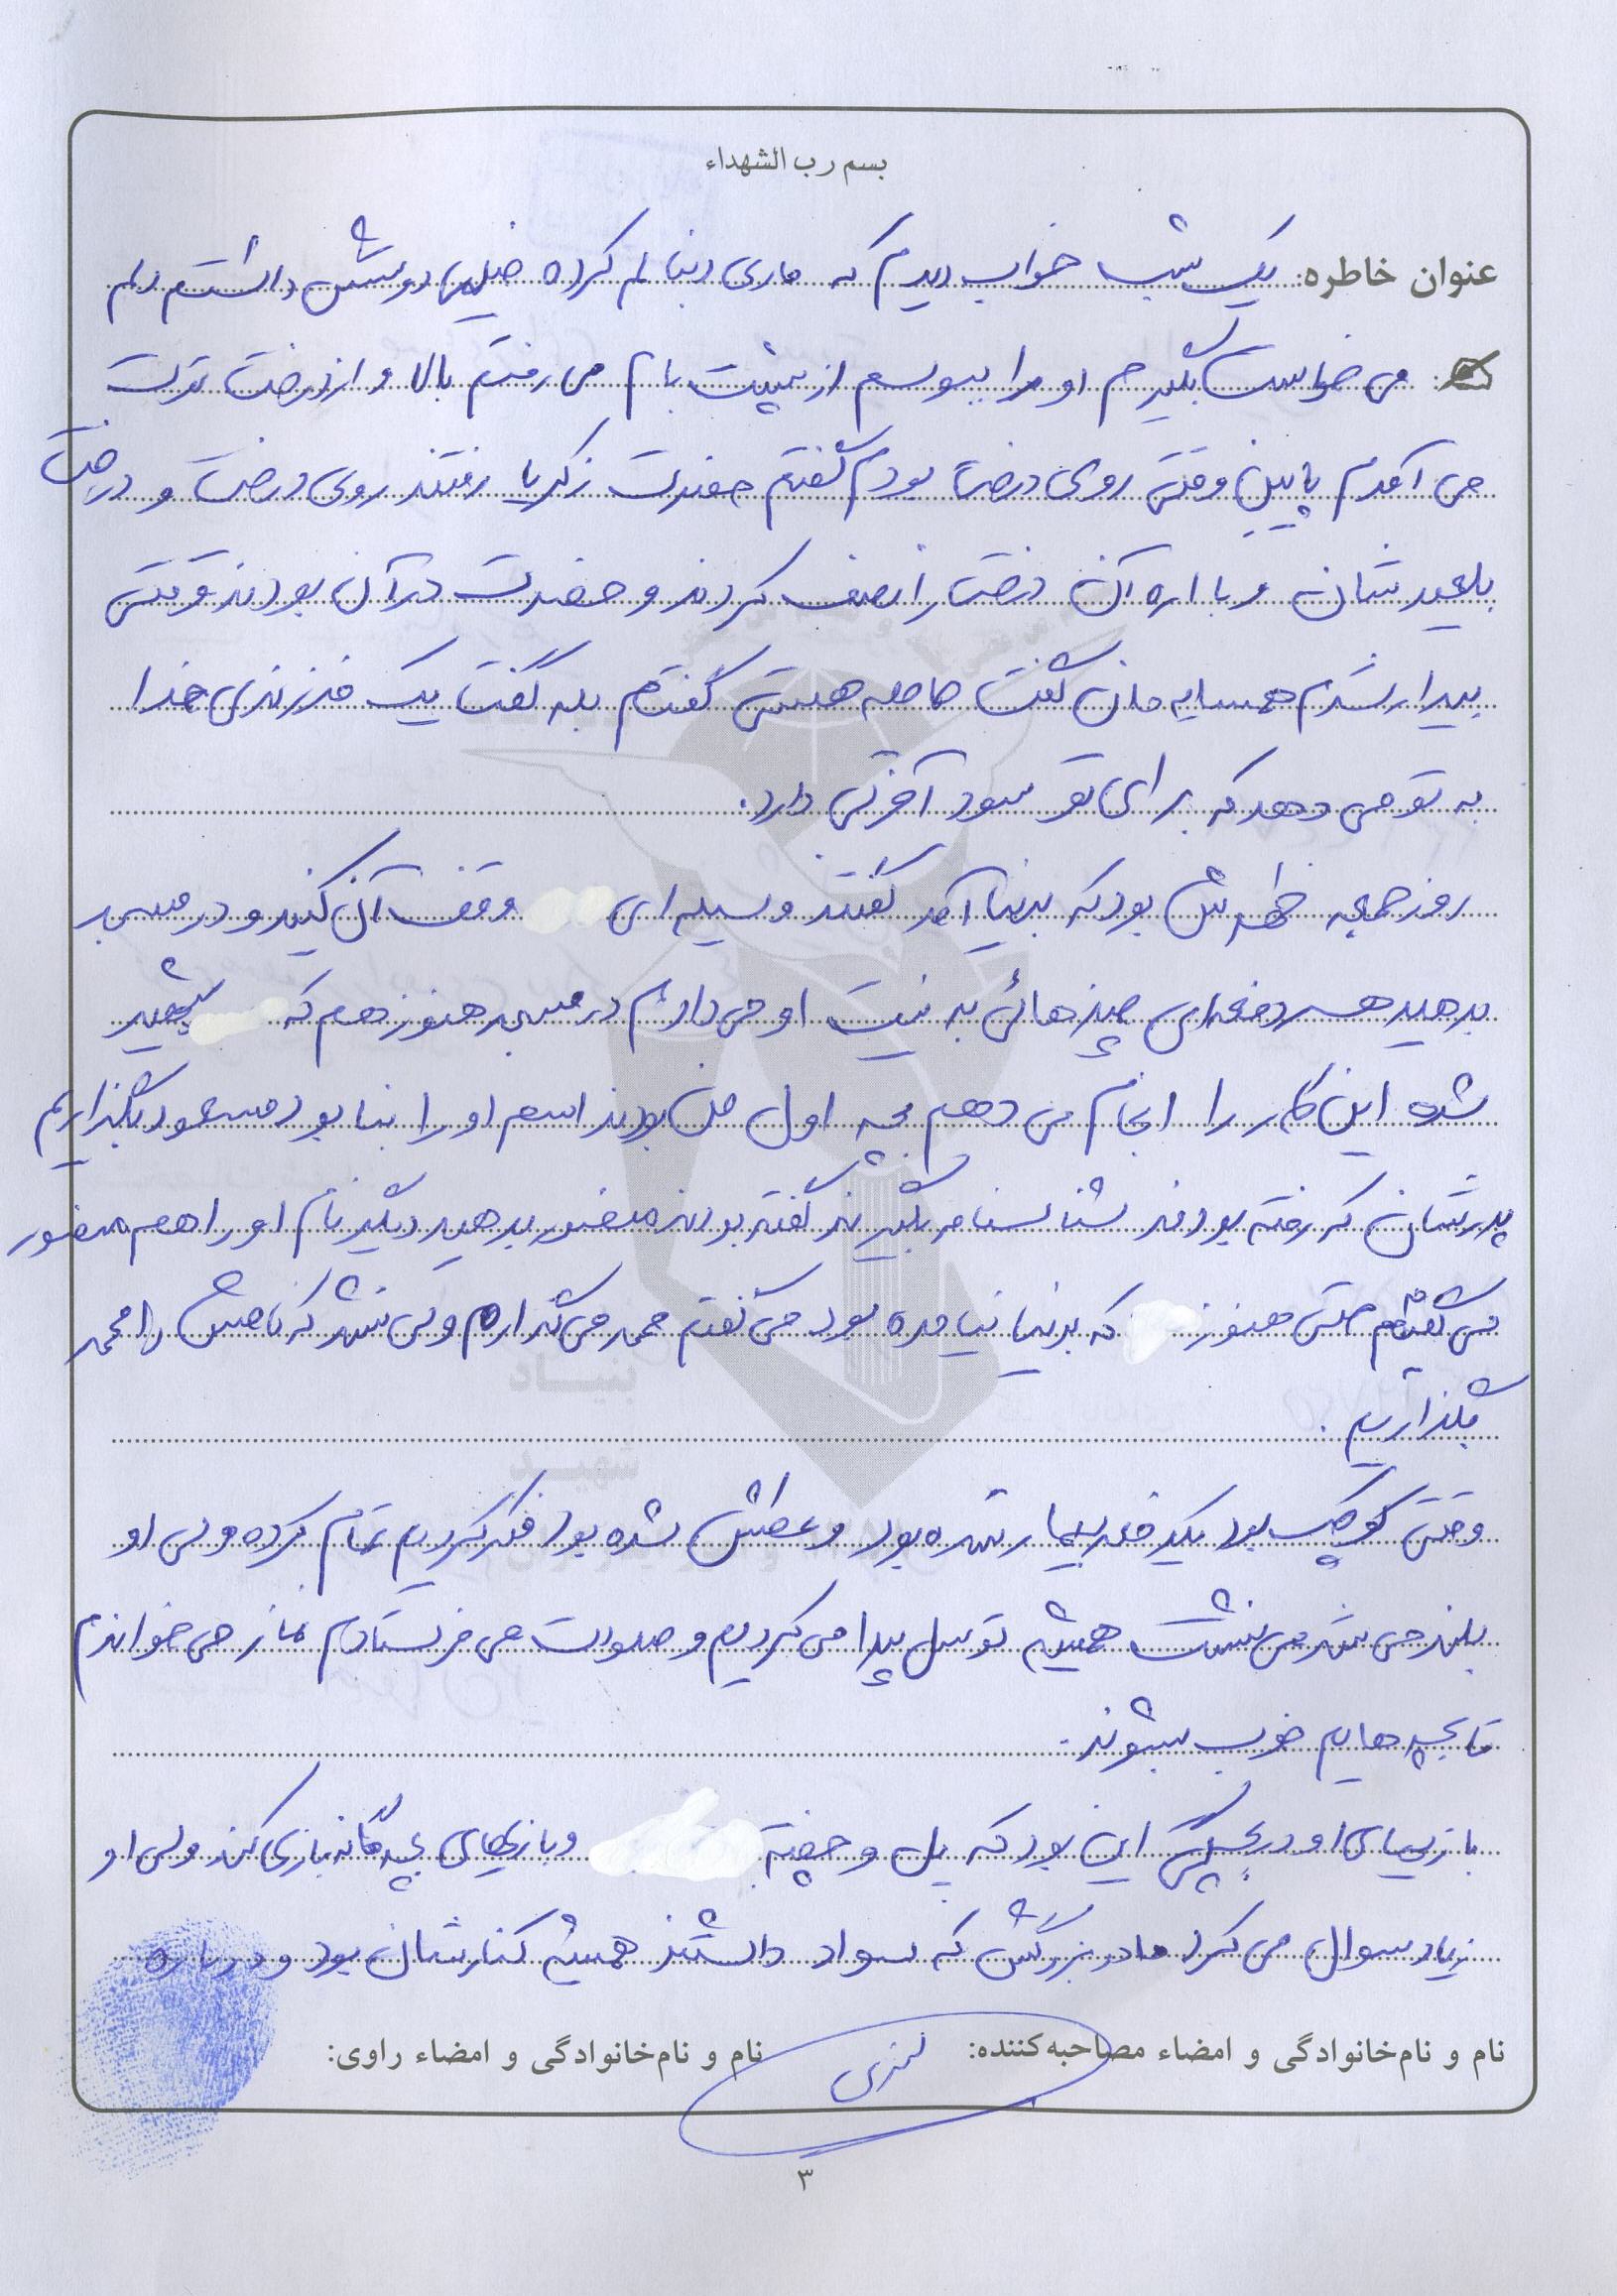 بسم رب الشهداء
عنوان خاطره: یک شب خواب دیدم که ماری دنبالم کرده خیلی دوستش داشتم دلم
می خواست بگیرم او را ببوسم از پشت بام می رفتم بالا و از درخت توت
می آمدم پایین وقتی روی درخت بودم گفتم حضرت زکریا رفتند روی درخت و درخت
بلعیدشان و با اره آن درخت را نصف کردند و حضرت در آن بودند وقتی
بیدار شدم همسایه مان گفت حامله هستی گفتم بله گفت یک فرزندی خدا
به تو می دهد که برای تو سود آخرتی دارد.
روز جمعه ظهرش بود که بدنیا آمد گفتند وسیله ای وقف آن کنید و در مسجد
بدهید هر دفعه ای چیزهائی به نیت او می دادم در مسجد هنوز هم که شهید
شده این کار را انجام می دهم بچه اول من بودند اسم او را بنا بود مسعود بگذاریم
پدرشان که رفته بودند شناسنامه بگیرند گفته بودند منصور بدهید دیگر نام او را هم منصور
می گفتیم حتی هنوز که بدنیا نیامده بود می گفتم محمد می گذارم ولی نشد که نامش را محمد
بگذاریم.
وقتی کوچک بود یکدفعه بیمار شده بود و عطش شده بود فکر کردیم تمام کرده ولی او
بلند می شد می نشست همیشه توسل پیدا می کردیم و صلوات می فرستادم نماز می خواندم
تا بچه هایم خوب بشوند.
بازیهای او در بچگی این بود که پل و چفته و بازیهای بچه گانه بازی کند ولی او
زیاد سوال می کرد مادربزرگش که سواد داشتند همیشه کنارشان بود و درباره
نام و نام‌خانوادگی و امضاء مصاحبه‌کننده: نام و نام‌خانوادگی و امضاء راوی:
۳